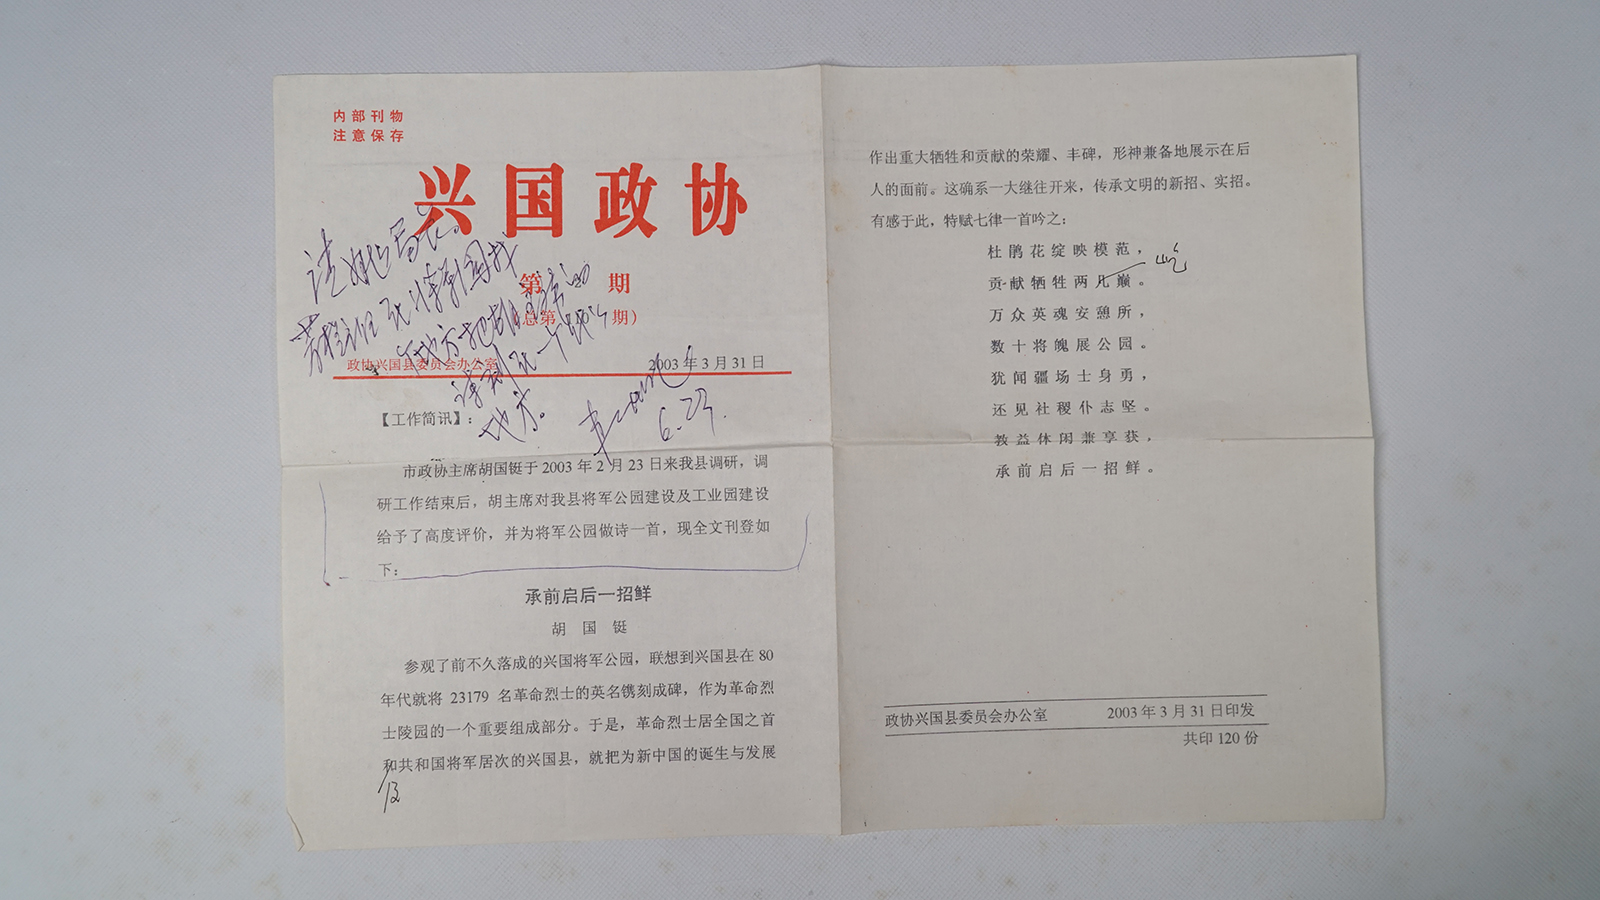 内部刊物
注意保存
兴国政协
第 期
(总第 期)
政协兴国县委员会办公室 2003年3月31日
【工作简讯】:
市政协主席胡国铤于2003年2月23日来我县调研，调
研工作结束后，胡主席对我县将军公园建设及工业园建设
给予了高度评价，并为将军公园做诗一首，现全文刊登如
下:
承前启后一招鲜
胡国铤
参观了前不久落成的兴国将军公园，联想到兴国县在80
年代就将23179名革命烈士的英名镌刻成碑，作为革命烈
士陵园的一个重要组成部分。于是，革命烈士居全国之首
和共和国将军居次的兴国县，就把为新中国的诞生与发展
作出重大牺牲和贡献的荣耀、丰碑，形神兼备地展示在后
人的面前。这确系一大继往开来，传承文明的新招、实招。
有感于此，特赋七律一首吟之:
杜鹃花绽映模范，
贡献牺牲两几巅。
屹
万众英魂安憩所，
数十将魄展公园。
犹闻疆场士身勇，
还见社稷仆志坚。
教益休闲兼享获，
承前启后一招鲜。
政协兴国县委员会办公室 2003年3月31日印发
共印120份
请姚局长。
地方。
6.23.